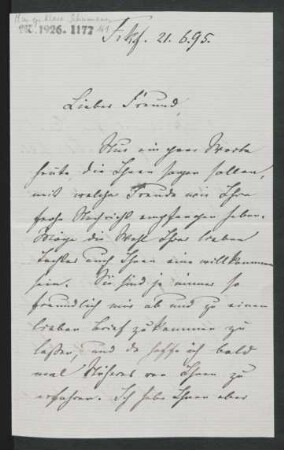 Ms. 1926. 1177
Frkf. 21. 6. 95.
Lieber Freund
Nur ein paar Worte
heute, die Ihnen sagen sollen,
mit welcher Freude wir Ihre
frohe Nachricht empfangen haben.
Möge die Wahl Ihrer lieben
Tochter auch Ihnen eine willkommene
sein. Sie sind ja immer so
freundlich mir ab und zu einen
lieben Brief zukommen zu
lassen, und da hoffe ich bald
mal Näheres von Ihnen zu
erfahren. Ich habe Ihnen aber